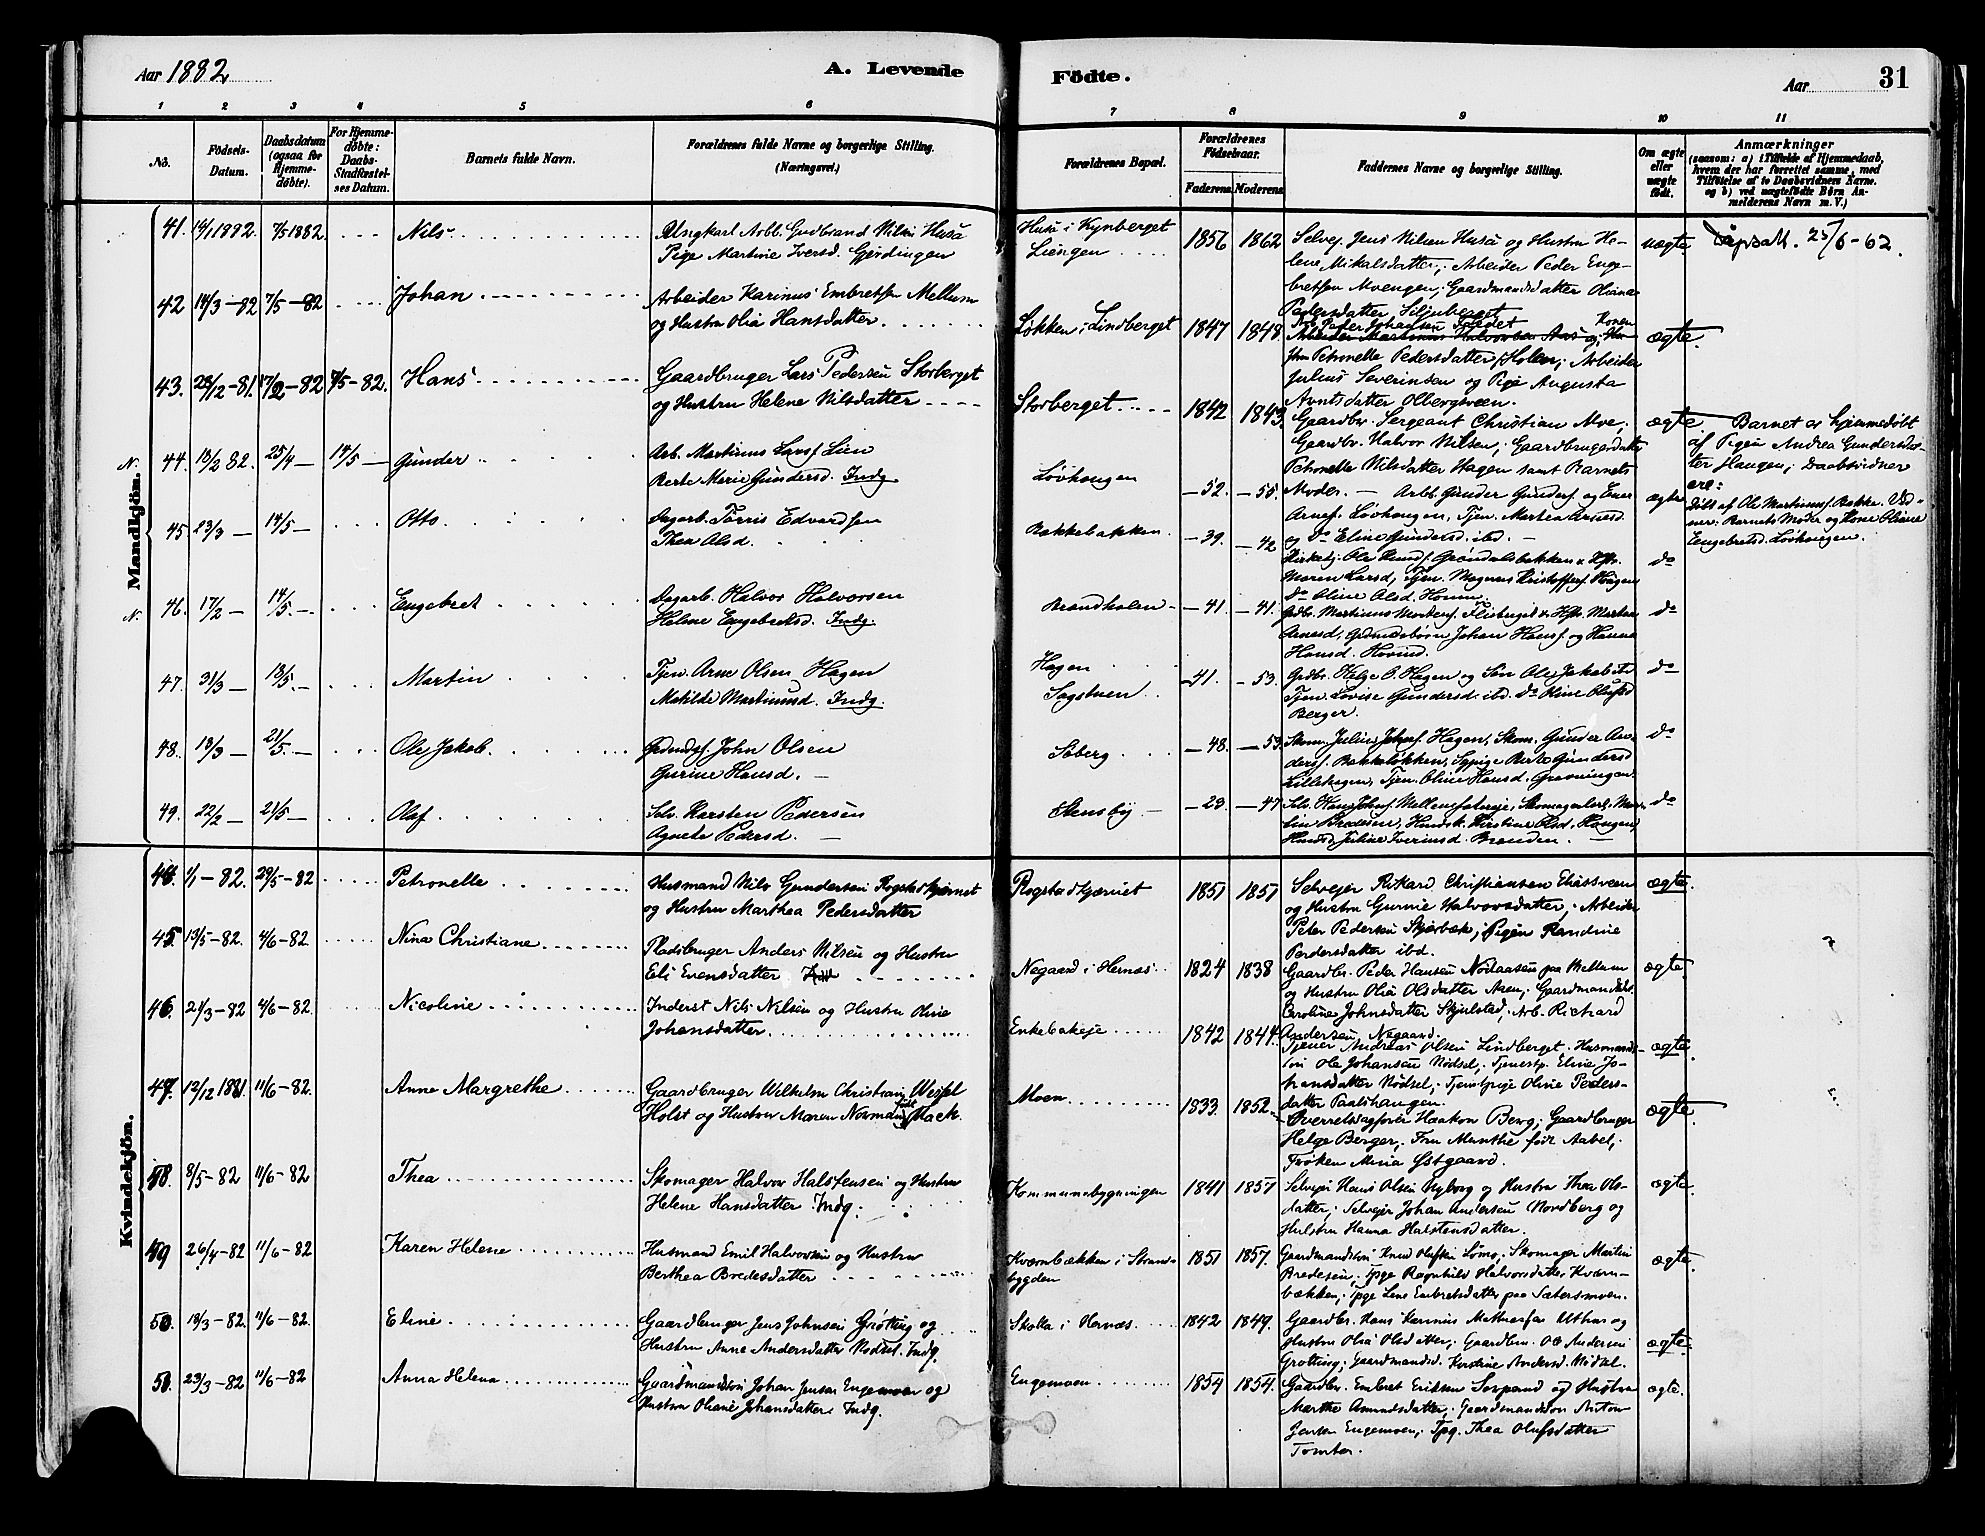 Aar 1882
A. Levende
Födte.
Aar
31
1 2 3 4 5 6 7 8 9 10 11
No.
Födsels-Datum.
Daabsdatum (ogsaa for Hjemme-döbte).
For Hjemme-döbte: Daabs-Stadfæstel-ses Datum.
Barnets fulde Navn.
Forældrenes fulde Navne og borgerlige Stilling. (Næringsvei.)
Forældrenes Bopæl.
Forældrenes Födselsaar.
Faderens Moderens
Faddernes Navne og borgerlige Stilling.
Om ægte eller uægte födt.
Anmærkninger
(saasom: a) i Tilfælde af Hjemmedaab, hvem der har forrettet samme, med Tilföielse af to Daabsvidners Navne. og b) ved uægtefödte Börn Anmelderens Navn m. V.)
Mandkjön.
41. 14/1 1882. 7/5 1882. Nils
Ungkarl Arb. Gudbrand Nilsen Huså
Pige Martine Iversd. Gjerdingen
Husu i Kynberget
Liengen
1856 1862
Selvej. Jens Nilsen Huså og Hustru He-
lene Mikalsdatter, Arbeider Peder Enge-
bretsen Moengen; Gaardmandsdatter Oliana
Pedersdatter Siljuberget
uægte.
25/6-62.
42 14/3-82 7/5-82 Johan
Arbeider Karinus Embretsen Mellum
og Hustru Olia Hansdatter
Løkken i Lindberget
1847 1848
Konen
Petronelle Pedersdatter Holen; Arbeider
Julius Severinsen og Pige Augusta
Arntsdatter Olbergsveen.
ægte.
43. 28/12-81. 17/2-82 7/5-82. Hans
Gaardbruger Lars Pedersen Storberget
og Hustru Helene Nilsdatter
Storberget
1842 1843.
Gaardbr. Sergeant Christian Moe;
Gaardbr. Halvor Nilsen; Gaardbrugerdatter
Petronelle Nilsdatter Hagen samt Barnets
Moder.
ægte.
Barnet er hjemmedøbt
af Pigen Andrea Gundersdat-
ter Haugen; Daabsvidner
ere:
N. 44. 13/2 82. 25/4 — 14/5 — Gunder
Arb. Martinus Larsf Lien
Berte Marie Gundersd. Indg.
Løvhaugen
—52. —55.
Arb. Gunder Gunders. og Ener
Arnes. Løvhaugen, Tjen. Marthea Arnesd.
og do Eline Gundersd. ibd. —
ægte
Døbt af Ole Martinusf. Bakke. Vid-
ner: Barnets Moder og Kone Oliane
Engebretsd. Løvhaugen.
45 23/3 — 14/5 — Otto
Dagarb. Torris Edvardsen
Thea Olsd.
Bakkebakken
—39. —42
Kirketj. Ole Knuds. Grøndalsbakken &
Maren Larsd, Tjen. Magnus Kristoffers. Haugen
do Oline Olsd.
do
N. 46. 17/2 — 14/5 — Engebret
Dagarb. Halvor Halvorsen
Helene Engebretsd. Indg.
Brandholen
—41. —41.
Gdbr. Martinus
Arnesd, Grdmdsbørn Johan Hansf og Hanna
Hansd. Hovind.
do
47. 31/3 — 13/5 — Martin
Tjen. Arne Olsen Hagen
Matilde Martinusd. Indg.
Hagen
Sagstuen
—41. —53.
Grdbr. Helge O. Hagen og Søn Ole Jakob ibd
Tjen. Lovise Gundersd. ibd. do Oline Olufsd
Berger.
do
48. 13/3 — 21/5 — Ole Jakob.
Grdmdsf. John Olsen
Gurine Hansd. —
Søberg
—48. —53.
Skom. Julius Hagen, Skom. Gunder An-
dersf. Bakkeløkken, Berte Gundersd
Lillehagen, Tjen. Oline Hansd. Grøvningen
do
49. 22/2 — 21/5 — Olaf
Selv. Karsten Pedersen
Agnete Pedersd. —
Stensby —
—23. —47
Selv. Hans Johns. Skomagerlært. Mar-
tin Bredesen, Kirstine Olsd. Haugen,
Juline Iversd. Brænden. —
do
Kvindekjön.
44. 1/1-82. 29/5-82 Petronelle
Husmand Nils Gundersen Rogstadkjernet
og Hustru Marthea Pedersdatter
Rogstadkjernet
1851 1851
Selvejer Rikard Christiansen Eliassveen
og Hustru Gurine Halvorsdatter; Arbeider
Peter Pedersen Skjærbæk; Pigen Randine
Pedersdatter ibd.
ægte.
45. 13/5-82. 4/6-82 Nina Christiane
Pladsbruger Anders Nilsen og Hustru
Eli Evensdatter
Nøgaard i Hernæs
1824 1838
Gaardbr. Peder Hansen Nordaasen paa Mellum
og Hustru Olia Olsdatter Aasen; Gaardmandsd.
Caroline Johnsdatter Skjulstad; Arb. Richard
Andersen Nøgaard.
ægte
46. 21/3-82 4/6-82. Nicoline
Inderst Nils Nilsen og Hustru Oline
Johansdatter
Enkebakeje
1842 1844.
Tjener Andreas Olsen Lindberget. Husmands-
søn Ole Johansen Nødsel; Tjenestp. Eline Jo-
hansdatter Nødsel; Tjenestpige Oline Peders-
datter Paalshaugen.
ægte
47. 13/12 1881 11/6-82. Anna Margrethe
Gaardbruger Wilhelm Christian Wessel
Holst og Hustru Maren Normann født Mack.
Moen
1833. 1852.
Overretssagfører Haakon Berg; Gaardbruger
Helge Berger; Fru Munthe født Aabel;
Frøken Mina Østgaard.
ægte
48. 8/5-82 11/6-82. Thea
Skomager Halvor Halstensen og Hustru
Helene Hansdatter Indg.
Kommunebygningen
1841 1857
Selvejer Hans Olsen Nyborg og Hustru Thea Ols-
datter; Selvejer Johan Andersen Nordberg og
Hustru Hanna Halstensdatter.
ægte.
49 26/4-82 11/6-82 Karen Helene
Husmand Emil Halvorsen og Hustru
Berthea Bredesdatter
Kværnbækken i Strands-
bygden
1851 1857.
Gaardmandssøn Knud Olufsen Lømo; Skomager Martin
Bredesen; Tpge Ragnhild Halvorsdatter Kværn-
bækken; Tpge Lene Embretsdatter paa Sætersmoen.
ægte.
50. 13/3-82. 11/6-82. Eline
Gaardbruger Jens Johnsen Grøtting og
Hustru Anne Andersdatter Nødsel. Indg.
Skolla i Hernæs.
1842 1849.
Gaardbr. Hans Karinus Uthus og
Hustru Olia Olsdatter; Gaardbr. Ole Andersen
Grøtting; Gaardmandsd. Kirstine Andersd. Nødsel.
ægte.
51. 23/3-82 11/6-82 Anna Helena
Gaardmandssøn Johan Jensen Engemoen og
Hustru Oliane Johansdatter Indg.
Engemoen
1854 1854.
Gaardbr. Embret Eriksen Sorpand og Hustru
Marthe Amundsdatter; Gaardmandssøn Anton
Jensen Engemoen; Tpg. Thea Olufsdatter
Tomter.
ægte.